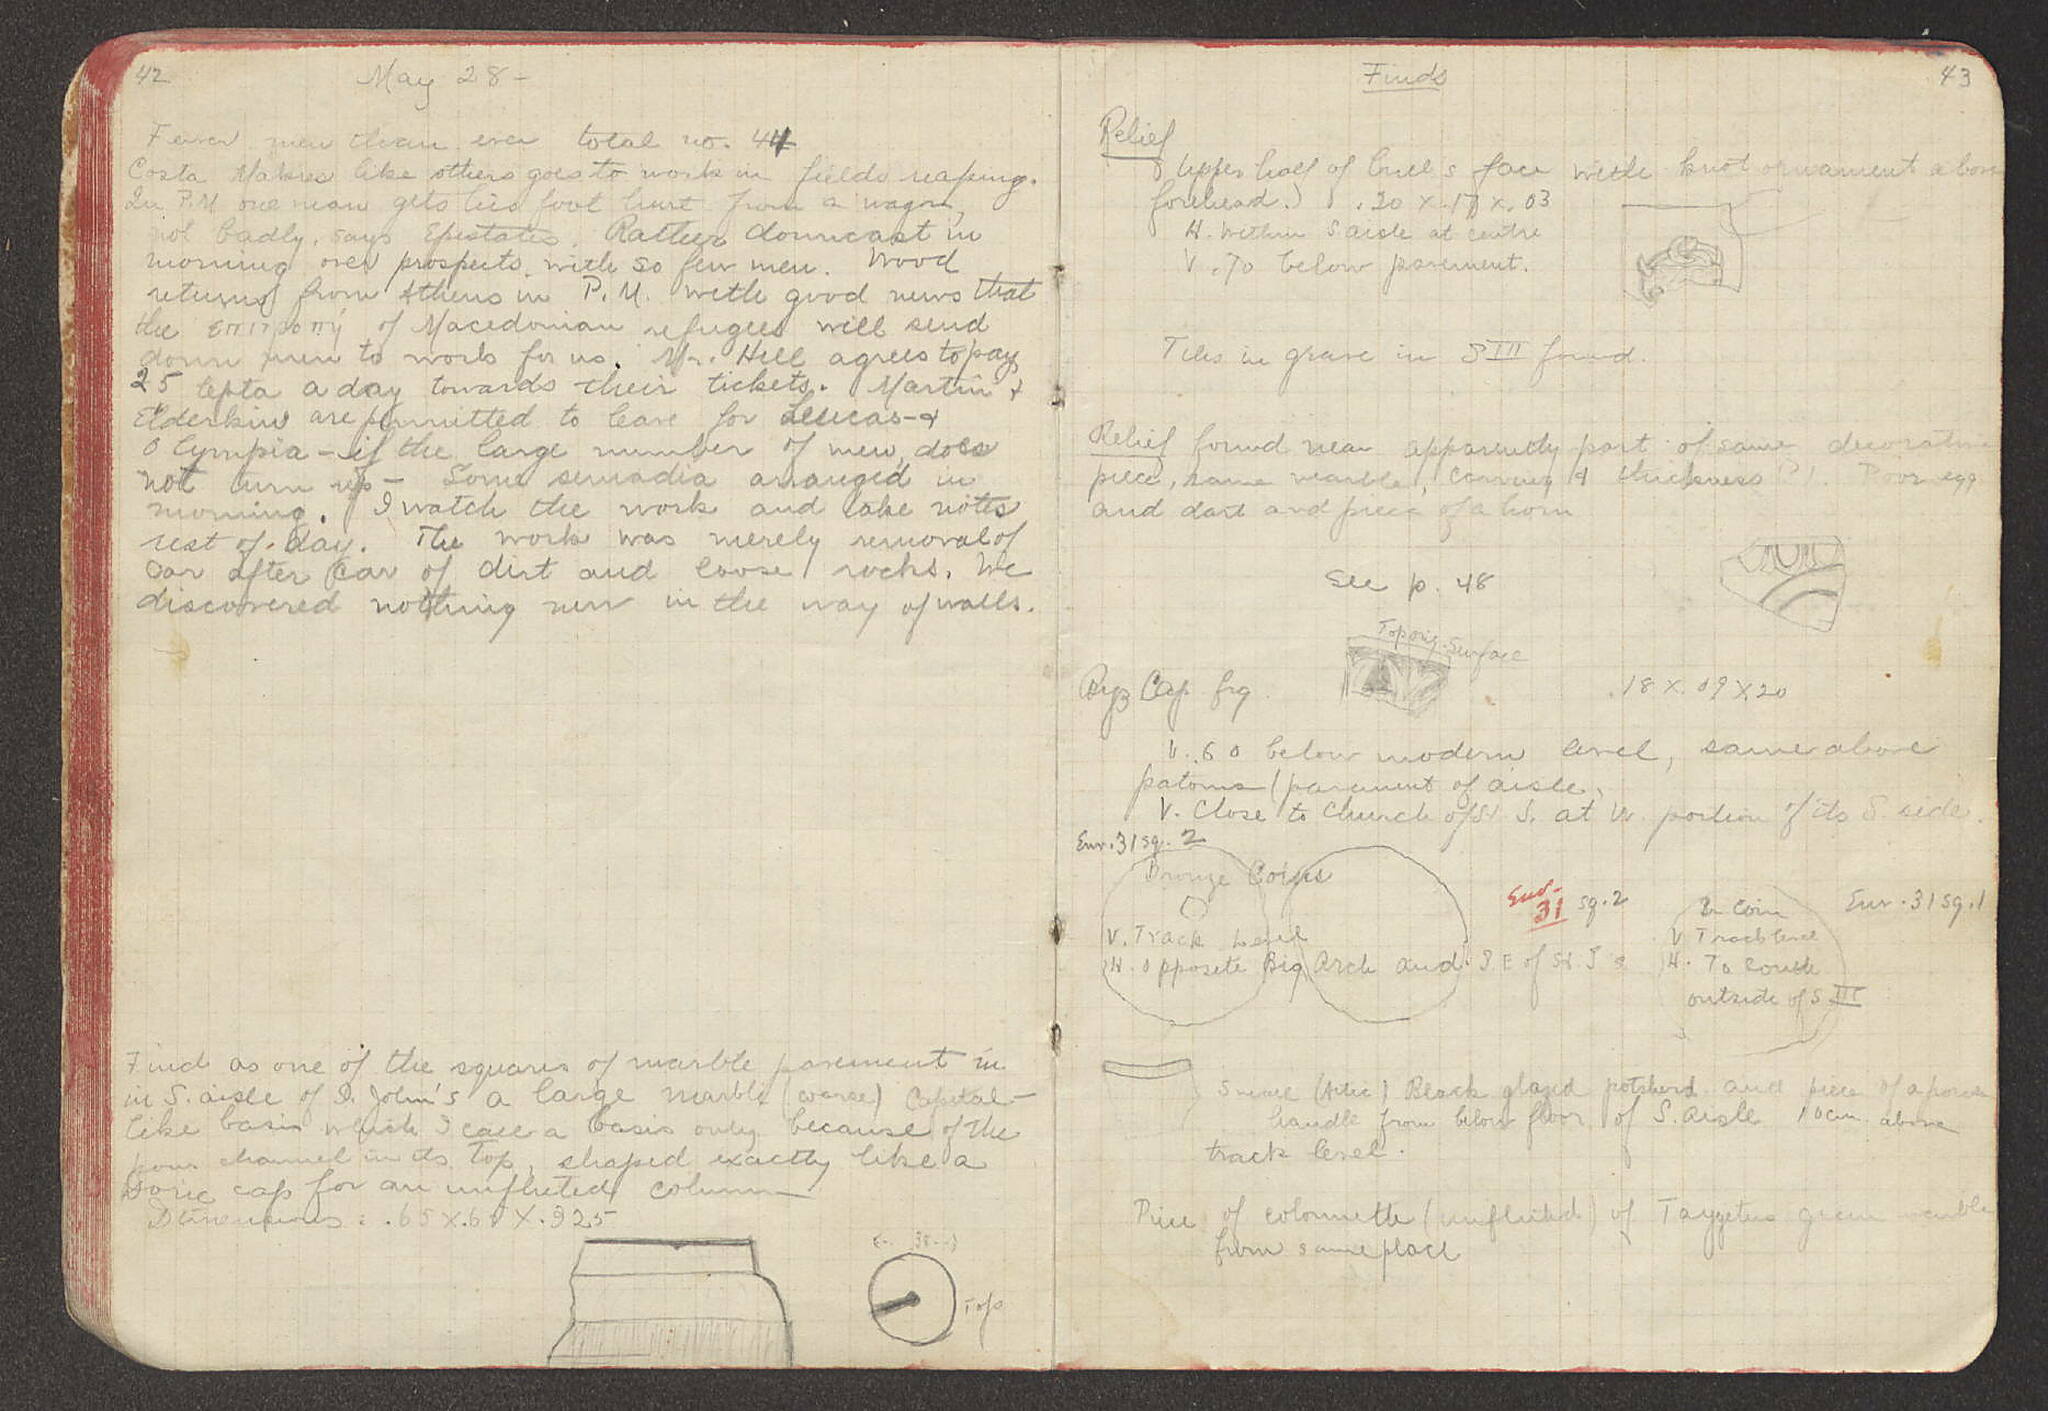 42
May 28 –
Fewer men than ever total no. 44
Costa Makres like others goes to work in fields reaping.
In P.M one man gets his foot hurt from a wagon,
not badly, says Epistates. Rather downcast in
morning over prospects with so few men. Wood
returns from Athens in P.M. with good news that
the επιτροπή of Macedonian refugees will send
down men to work for us. Mr. Hill agrees to pay
25 lepta a day towards their tickets. Martin &
Elderkin are permitted to leave for Leucas – &
Olympia – if the large number of men, does
not turn up – Some semadia arranged in
morning. I watch the work and take notes
rest of day. The work was merely removal of
car after car of dirt and loose rocks. We
discovered nothing new in the way of walls.
Find as one of the squares of marble pavement in
in S. aisle of St. John's a large marble (coarse) Capital-
like basis which I call a basis only because of the
pour channel in its top, shaped exactly like a
Doric cap for an unfluted column
Dimensions: .65 x .61 x .325
.38
Top
Finds
43
Relief
Upper half of bull's face with knot ornament above
forehead.) .20 x .17 x .03
H. within S aisle at centre
V .70 below pavement.
Tiles in grave in S III found.
Relief found near apparently part of same decorative
piece, same marble, carving & thickness (?). Poor egg
and dart and piece of a horn
See p. 48
Top orig. Surface
Byz Cap frg. .18 x .09 x .20
V. .60 below modern level, same above
patoma / pavement of aisle.
V. Close to Church of St J. at W. portion of its S. side.
Eur. 31 sq. 2
Bronze Coins
V. Track Level
H. opposite Big Arch and S E of St J's
Eur. 31 sq. 2
Br Coin
V Track level
H. To South
outside of S III
Eur. 31 sq. 1
Small (Attic) Black glazed potsherd and piece of a
handle from below floor of S. Aisle 10 cm. above
track level.
Piece of colonnette (unfluted) of Taygetus green marble
from same place